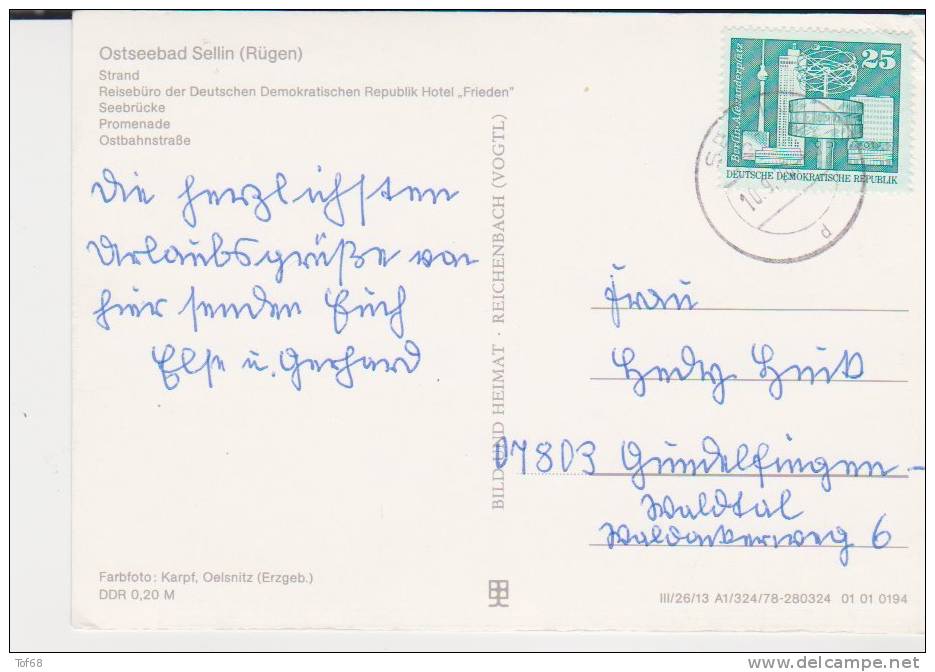 Ostseebad Sellin (Rügen)
Strand
Reisebüro der Deutschen Demokratischen Republik Hotel „Frieden"
Seebrücke
Promenade
Ostbahnstraße
Die herzlichsten
Urlaubsgrüße von
hier senden Euch
Else u. Gerhard
Farbfoto: Karpf, Oelsnitz (Erzgeb.)
DDR 0,20 M
BILD UND HEIMAT · REICHENBACH (VOGTL)
25
Berlin-Alexanderplatz
DEUTSCHE DEMOKRATISCHE REPUBLIK
10.9.
d
Frau
Hedy
07803 Gundelfingen -
Waldtal
Waldackerweg 6
III/26/13 A1/324/78-280324 01 01 0194
Tof68
www.delcampe.net